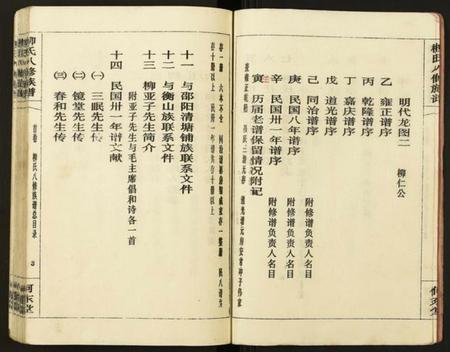 柳氏八修族谱
明代龙图二 柳仁公
乙 雍正谱序
丙 乾隆谱序
丁 嘉庆谱序
戊 道光谱序
己 同治谱序 附修谱负责人名目
庚 民国八年谱序 附修谱负责人名目
辛 民国卅一年谱序 附修谱负责人名目
寅 历届老谱保留情况附记
十一 与邵阳清塘铺族联系文件
十二 与衡山族联系文件
十三 柳亚子先生简介
附亚子先生与毛主席倡和诗各一首
十四 民国卅一年谱文献
㈠ 三眠先生传
㈡ 镜堂先生传
㈢ 春和先生传
首卷 柳氏八修族谱总目录 3
柳氏八修族谱
河东堂